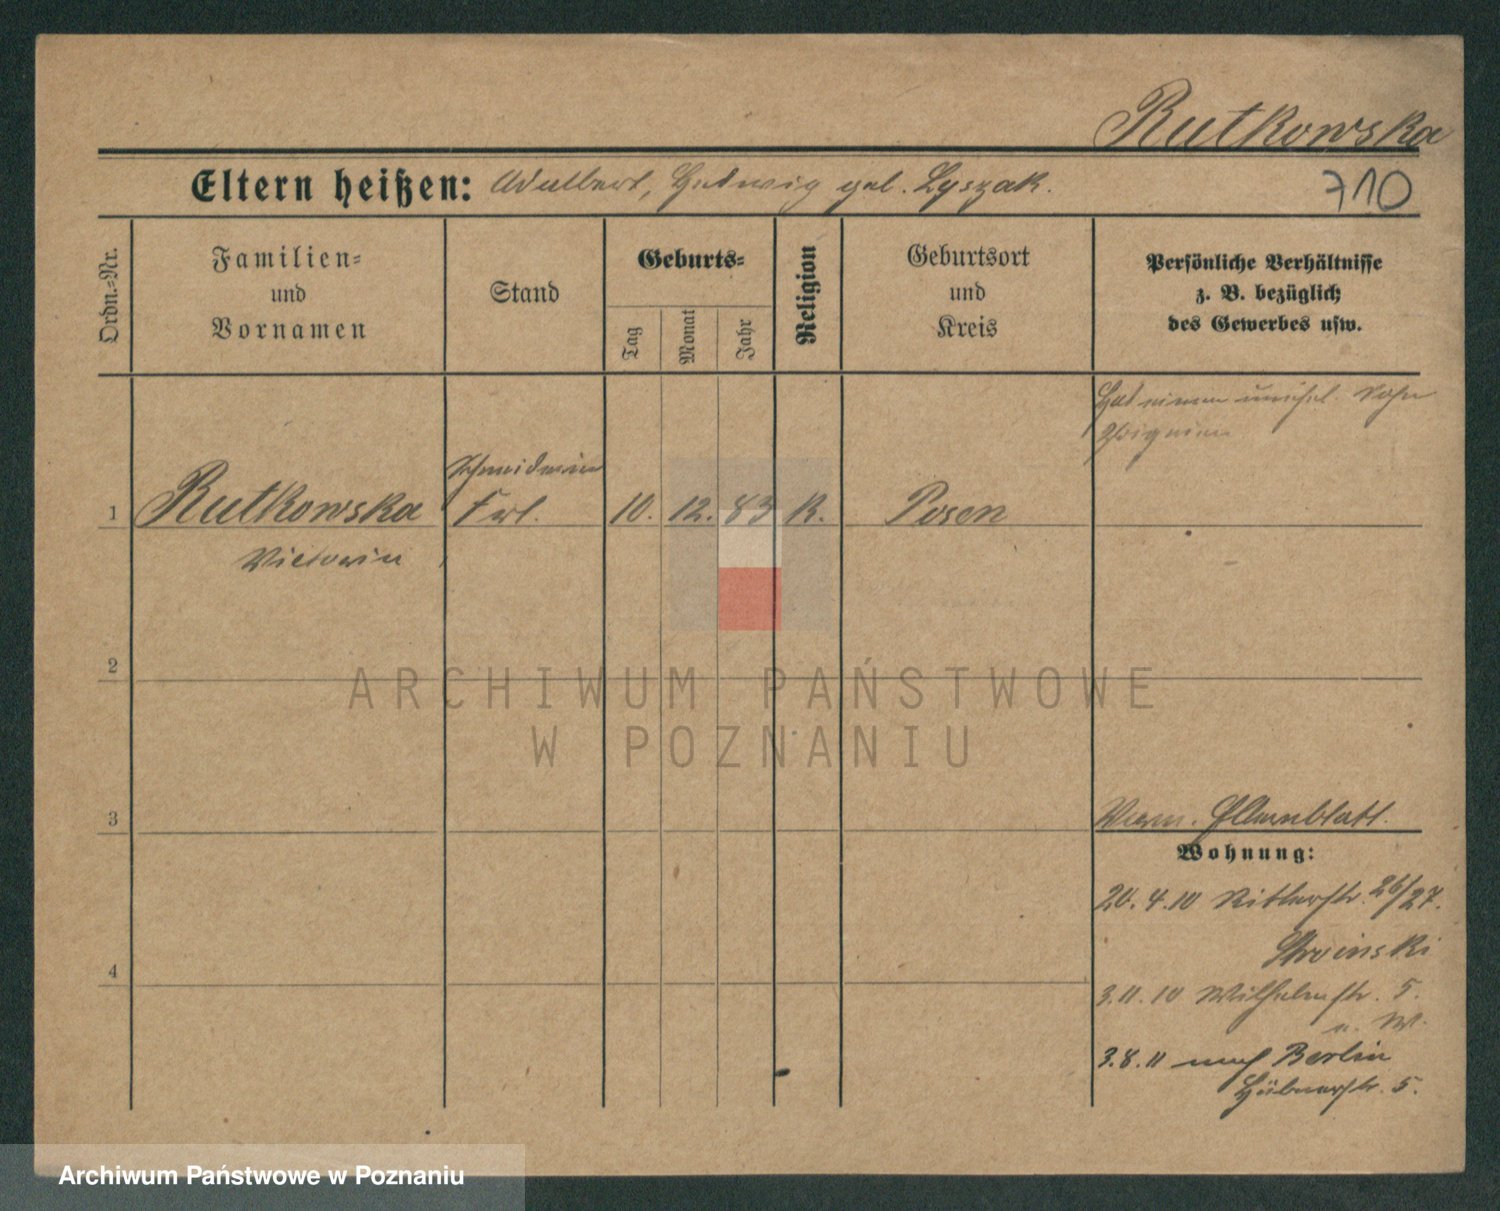 Rutkowska
Eltern heißen: Adalbert, Hedwig geb. Lyszak.
710
Ordn.-Nr.
Familien- und Vornamen
Stand
Geburts-
Tag
Monat
Jahr
Religion
Geburtsort und Kreis
Persönliche Verhältnisse
z. B. bezüglich
des Gewerbes usw.
Hat einen unehel. Sohn
Schneiderin
1 Rutkowska Frl. 10. 12. 83 K. Posen
Victoria
2
3
Elternblatt.
Wohnung:
20.4.10 Ritterstr. 26/27.
Stroinski
4
3.11.10 Wilhelmstr. 5.
b. W.
3.8.11 nach Berlin
Hübnerstr. 5.
ARCHIWUM PAŃSTWOWE
W POZNANIU
Archiwum Państwowe w Poznaniu